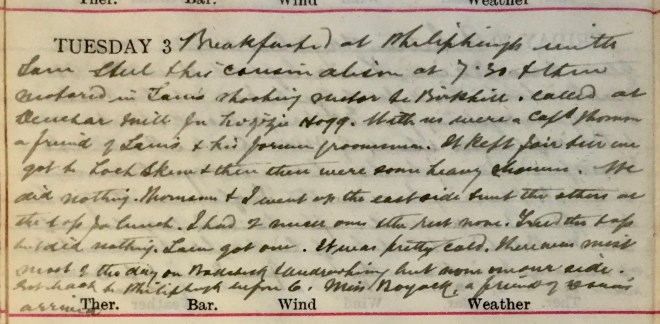 Ther. Bar. Wind Weather
TUESDAY 3 Breakfasted at Philiphaugh with
Sam Steel & his cousin Alison at 7.30 & then
motored in Sam's shooting motor to Birkhill. Called at
Deuchar Mill for Hogg. With us were a Capt Thomson
a friend of Sam's & his former groomsman. It kept fair till we
got to Loch Skene & then there were some heavy showers. We
did nothing. Thomson & I went up the east side & met the others at
the top for lunch. I had 2 ones & the rest none. Tried the top
but did nothing. Sam got one. It was pretty cold. There was mist
most of the day on but none on our side.
Got back to Philiphaugh before 6. Miss Boyack, a friend of
arrived.
Ther. Bar. Wind Weather